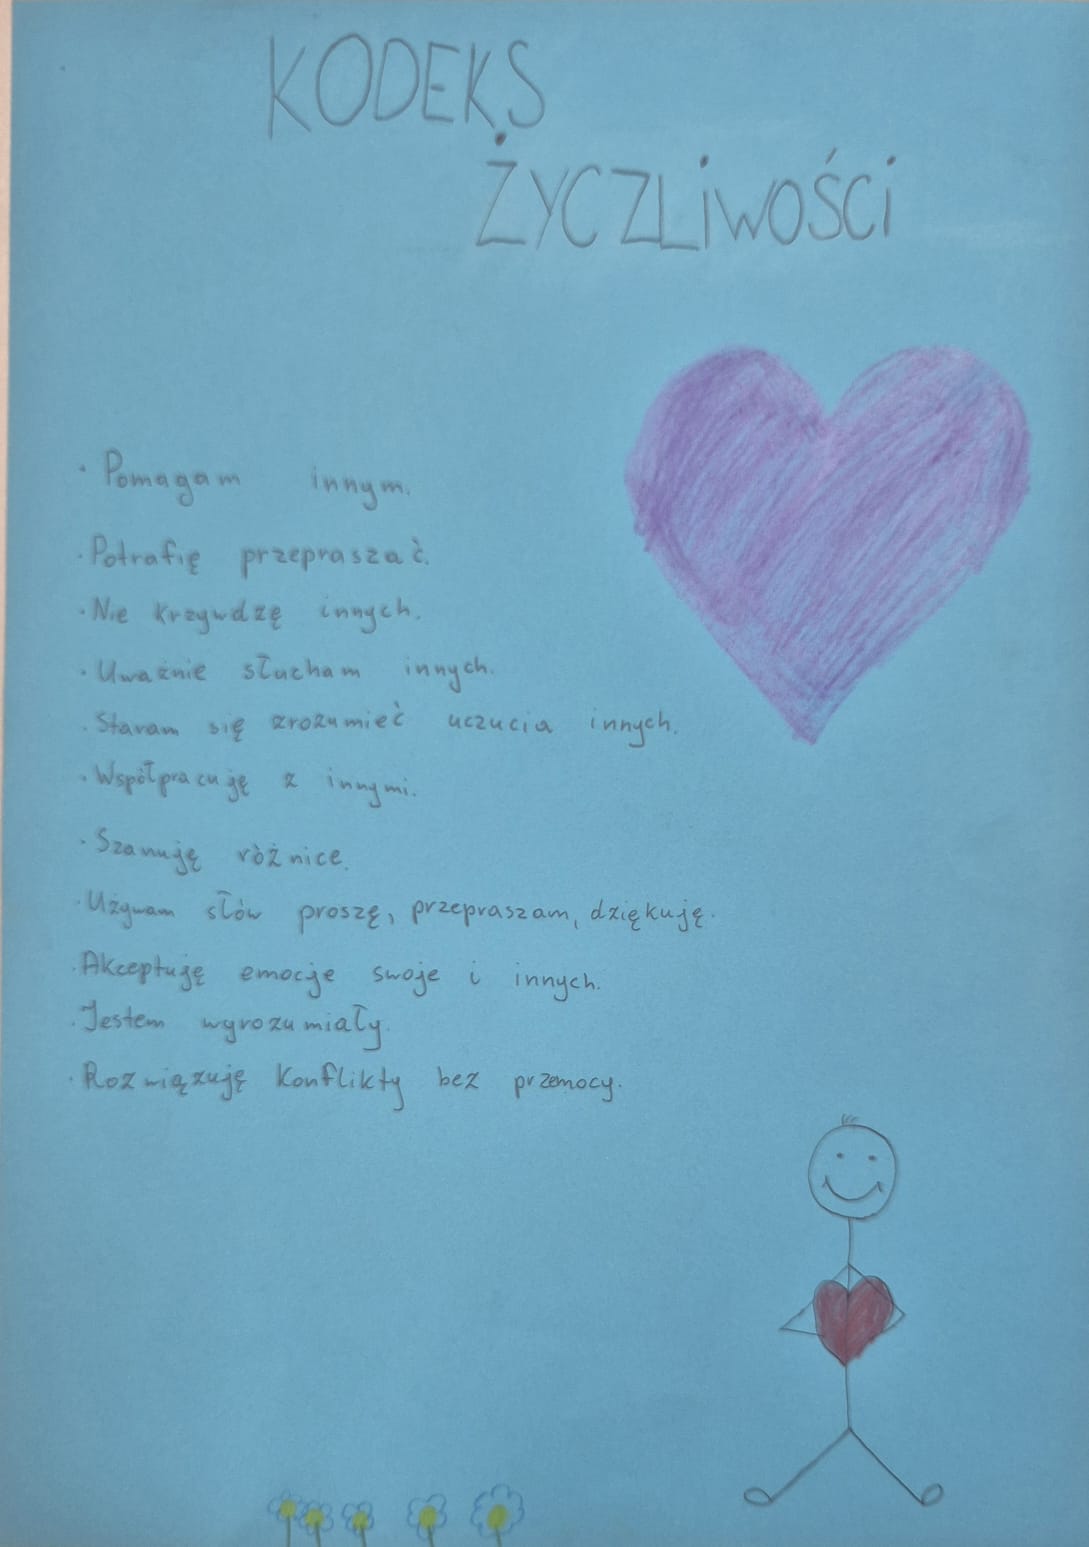 KODEKS
ŻYCZLiWOŚCi
· Pomagam innym.
· Potrafię przepraszać.
· Nie krzywdzę innych.
· Uważnie słucham innych.
· Staram się zrozumieć uczucia innych.
· Współpracuję z innymi.
· Szanuję różnice.
· Używam słów proszę, przepraszam, dziękuję.
· Akceptuję emocje swoje i innych.
· Jestem wyrozumiały.
· Rozwiązuję konflikty bez przemocy.